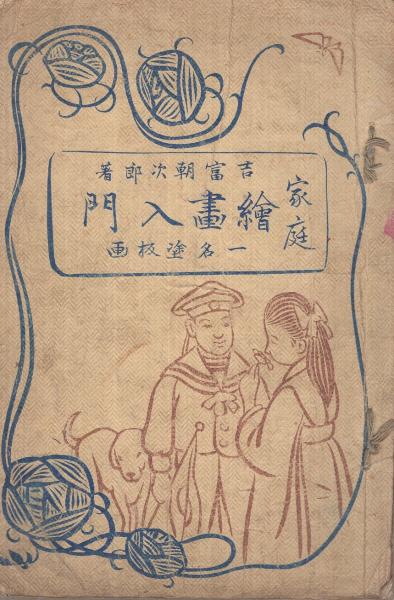 家庭
吉富朝次郎著
繪畫入門
一名塗板画